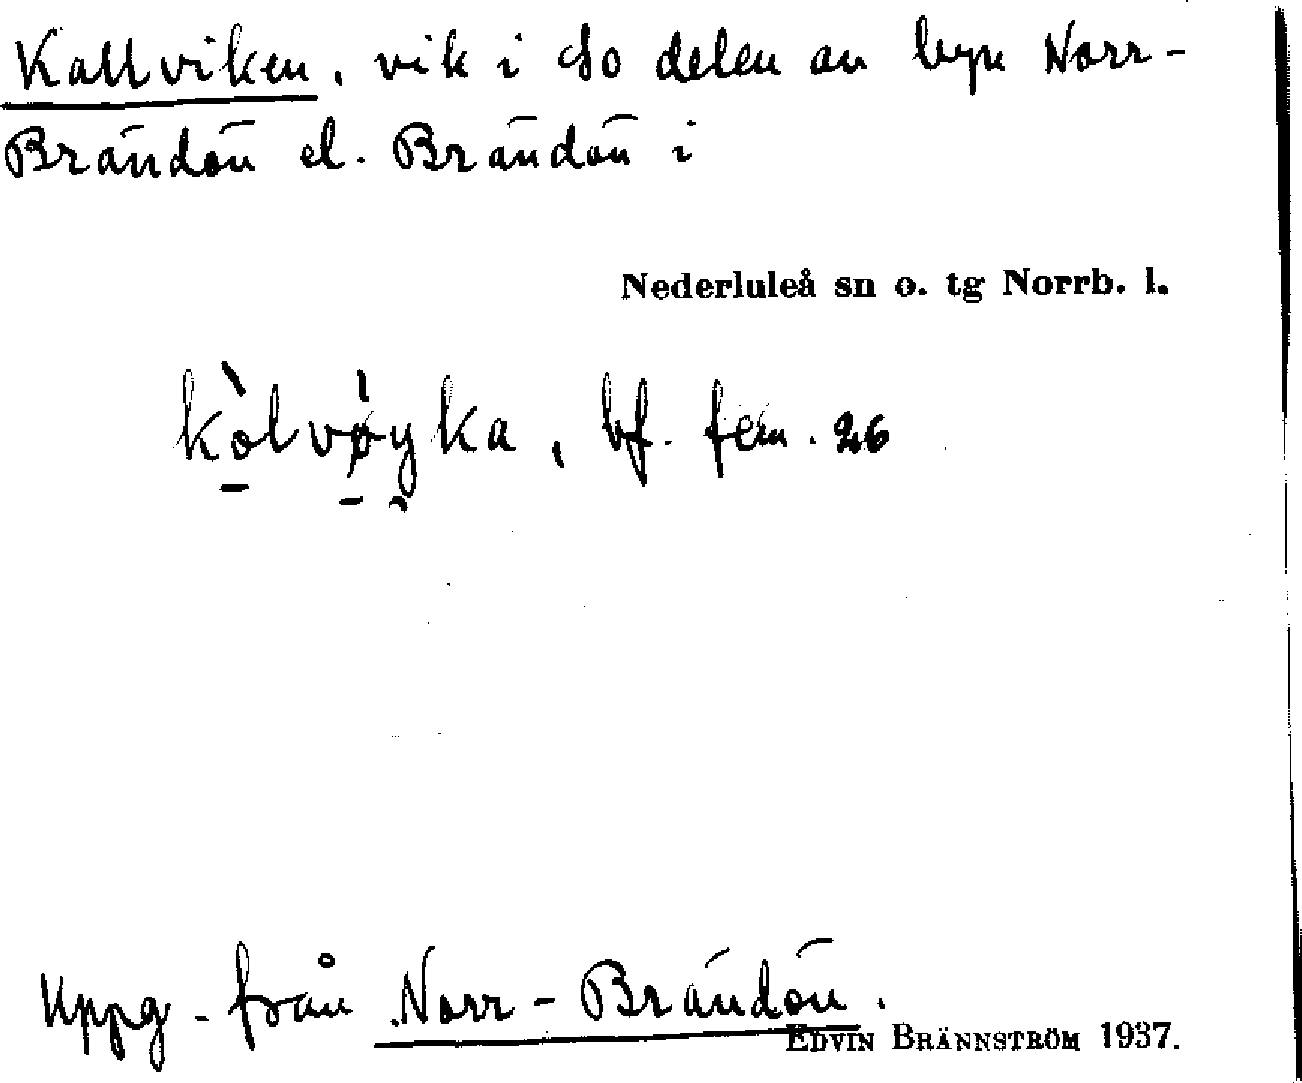 Kallviken, vik i so delen av byn Norr-
Brändön el. Brändön i
Nederluleå sn o. tg Norrb. l.
kòlvøyka, bf. fem. 26
Uppg. från Norr-Brändön.
EDVIN BRÄNNSTRÖM 1937.